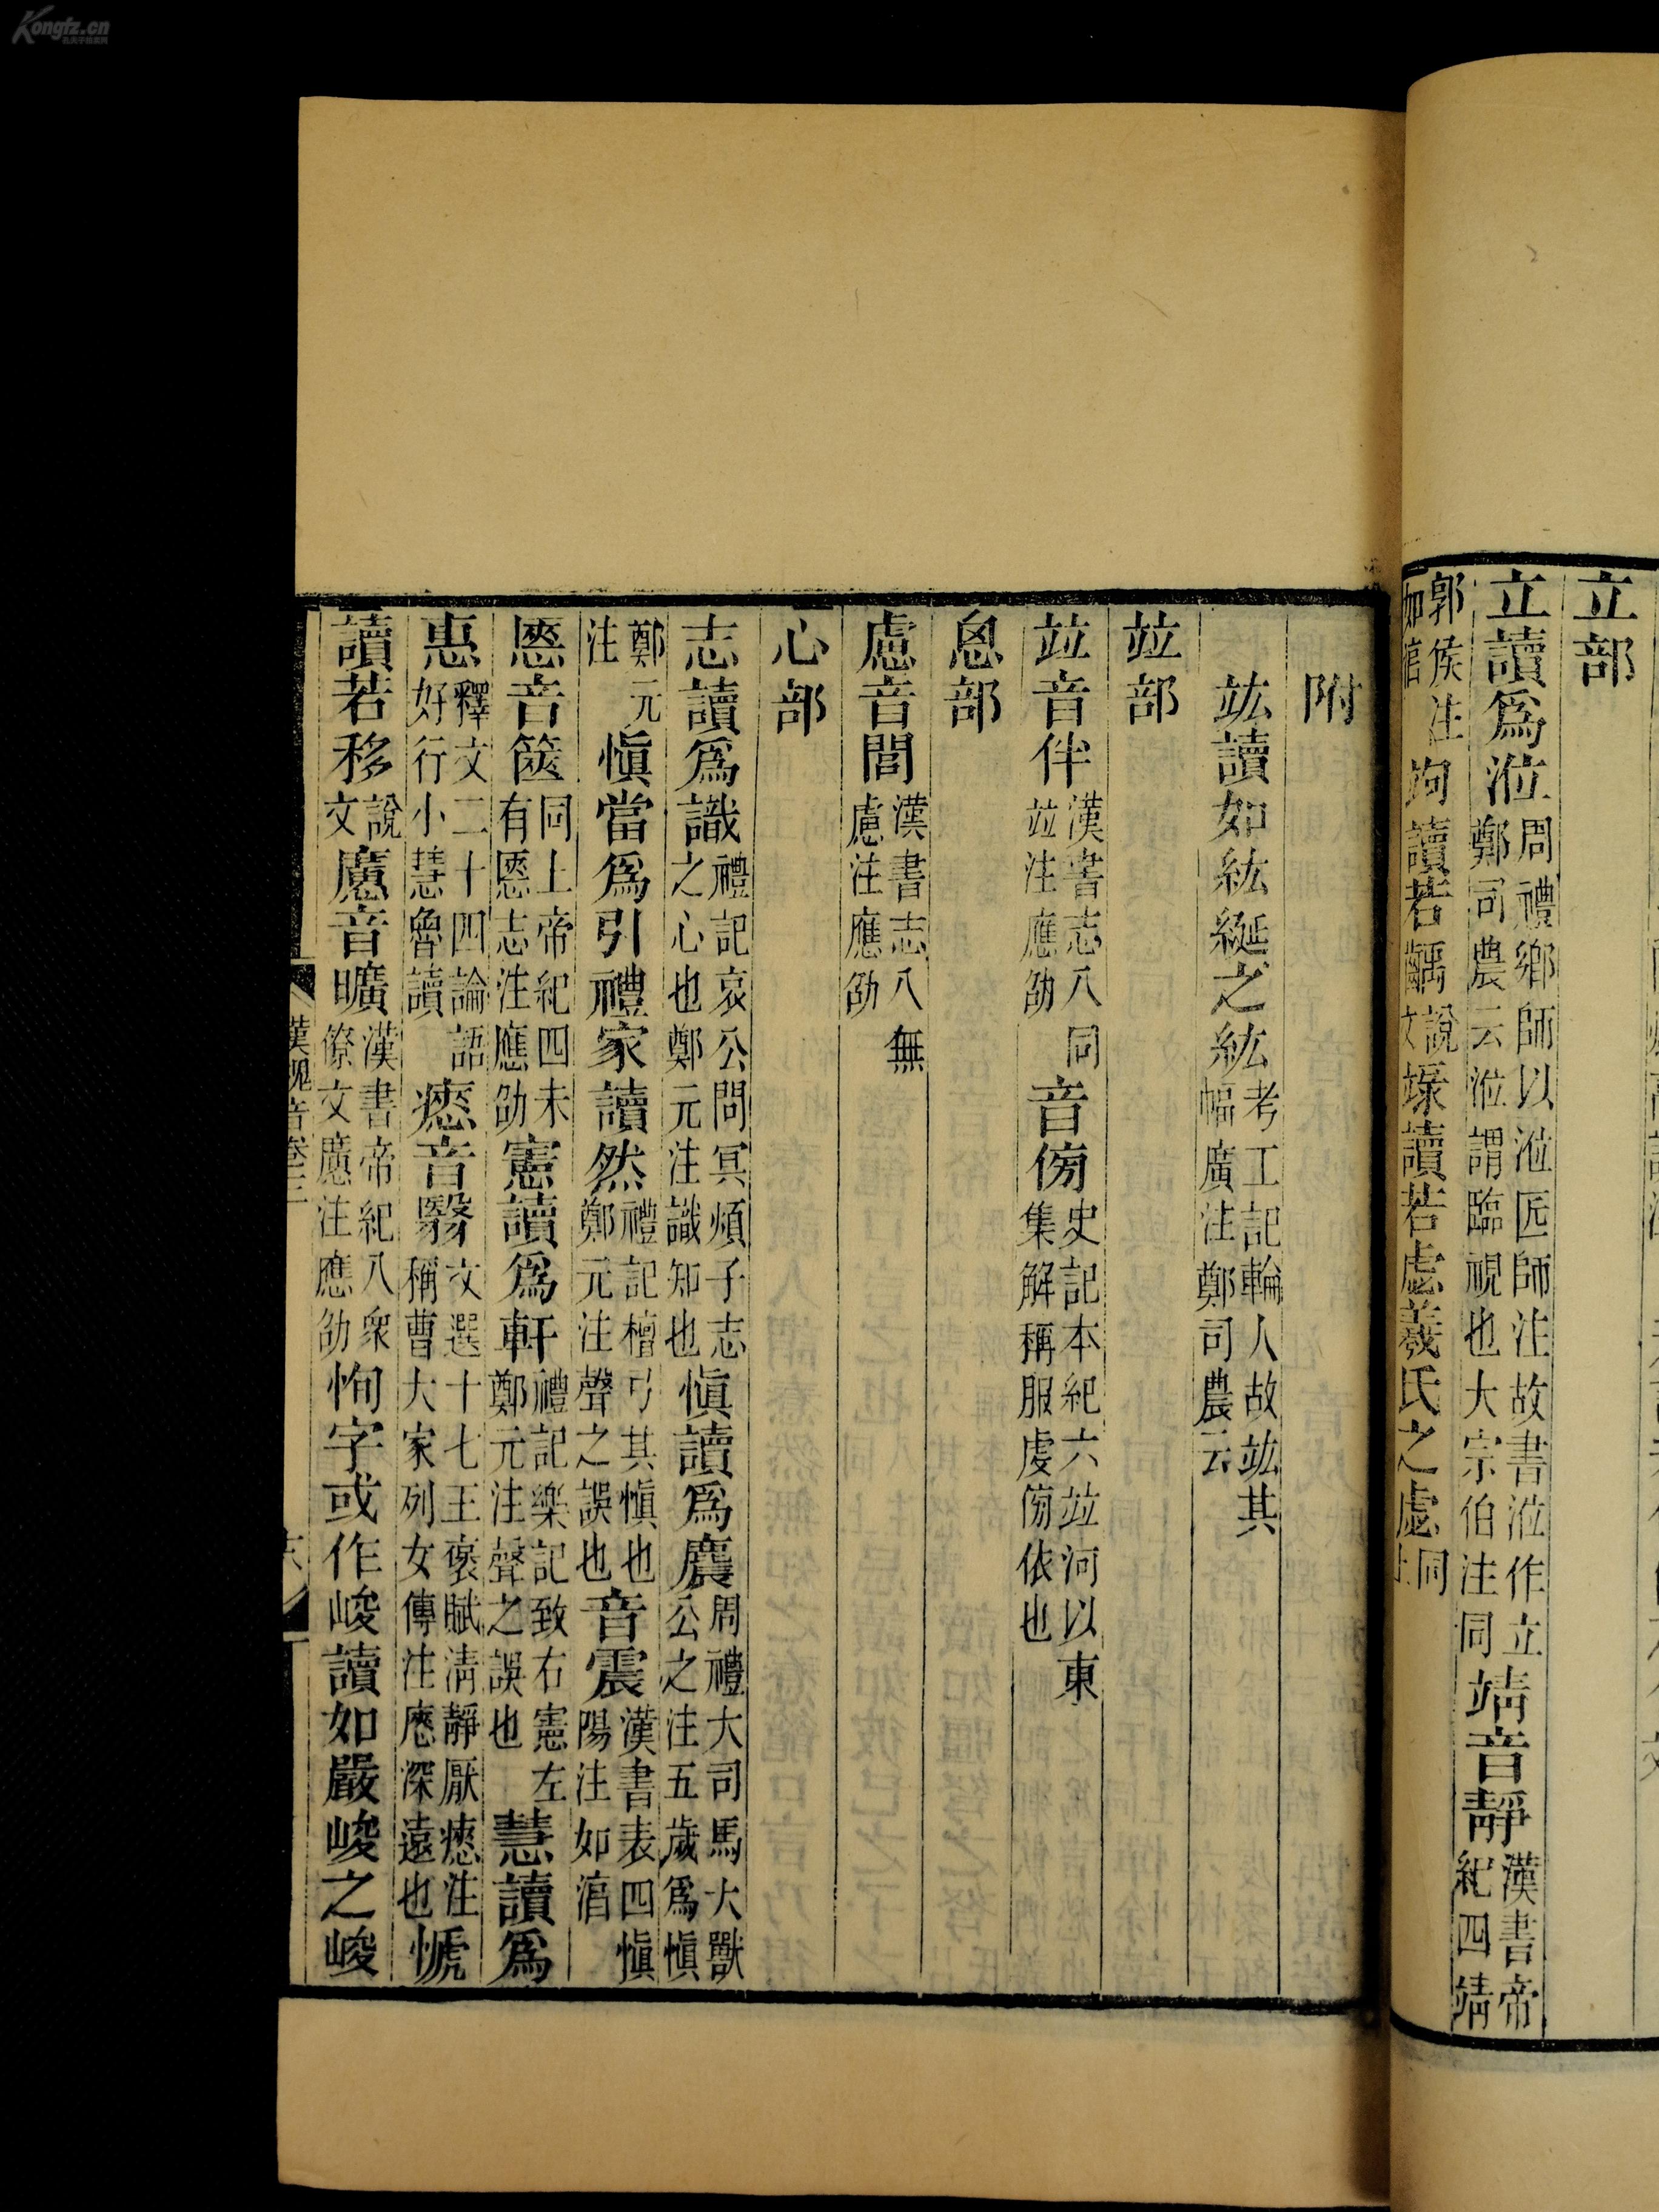 立部
立讀爲涖周禮鄉師以涖匠師注故書涖作立鄭司農云涖謂臨視也大宗伯注同竫音靜漢書帝紀四竫
郭侯注竘讀若齲說文㙇讀若虙羲氏之虙同上
附
竑讀如紘綖之紘考工記輪人故竑其幅廣注鄭司農云
竝部
竝音伴漢書志八竝注應劭同音傍史記本紀六竝河以東集解稱服虔傍依也
思部
慮音閭漢書志八無慮注應劭
心部
志讀爲識禮記哀公問冥煩子志之心也鄭元注識知也愼讀爲麎周禮大司馬大獸公之注五歲爲愼
鄭元注愼當爲引禮家讀然禮記檀弓其愼也鄭元注聲之誤也音震漢書表四愼陽注如淳
㥦音篋同上帝紀四未有㥦志注應劭憲讀爲軒禮記樂記致右憲左鄭元注聲之誤也慧讀爲
惠釋文二十四論語好行小慧魯讀瘱音翳文選十七王褒賦淸靜厭瘱注稱曹大家列女傳注瘱深邃也㦒
讀若移說文懬音曠漢書帝紀八衆僚文懬注應劭恂字或作峻讀如嚴峻之峻
漢魏音卷三
Kongfz.cn
孔夫子旧书网